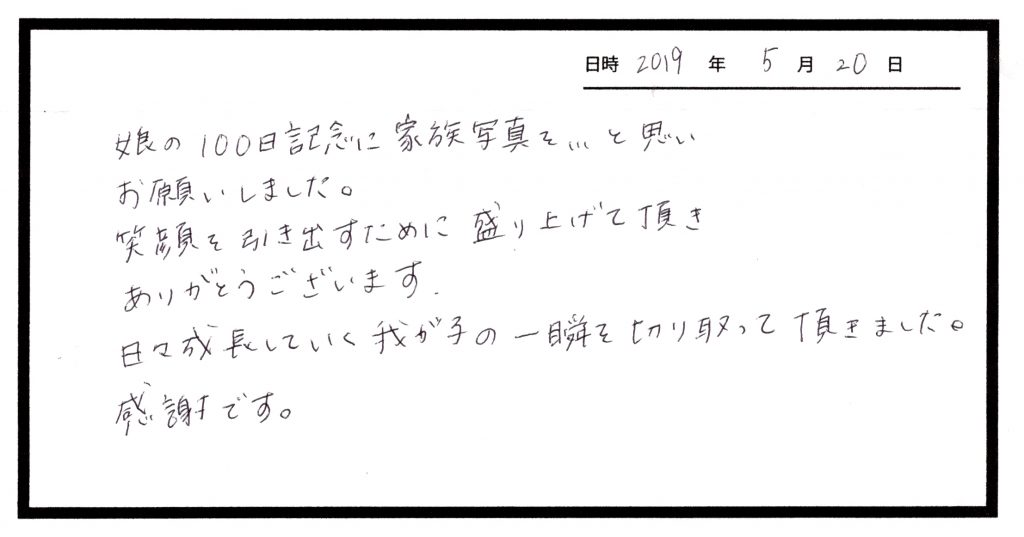 日時 2019 年 5 月 20 日
娘の100日記念に家族写真を...と思い
お願いしました。
笑顔を引き出すために盛り上げて頂き
ありがとうございます.
日々成長していく我が子の一瞬を切り取って頂きました。
感謝です。